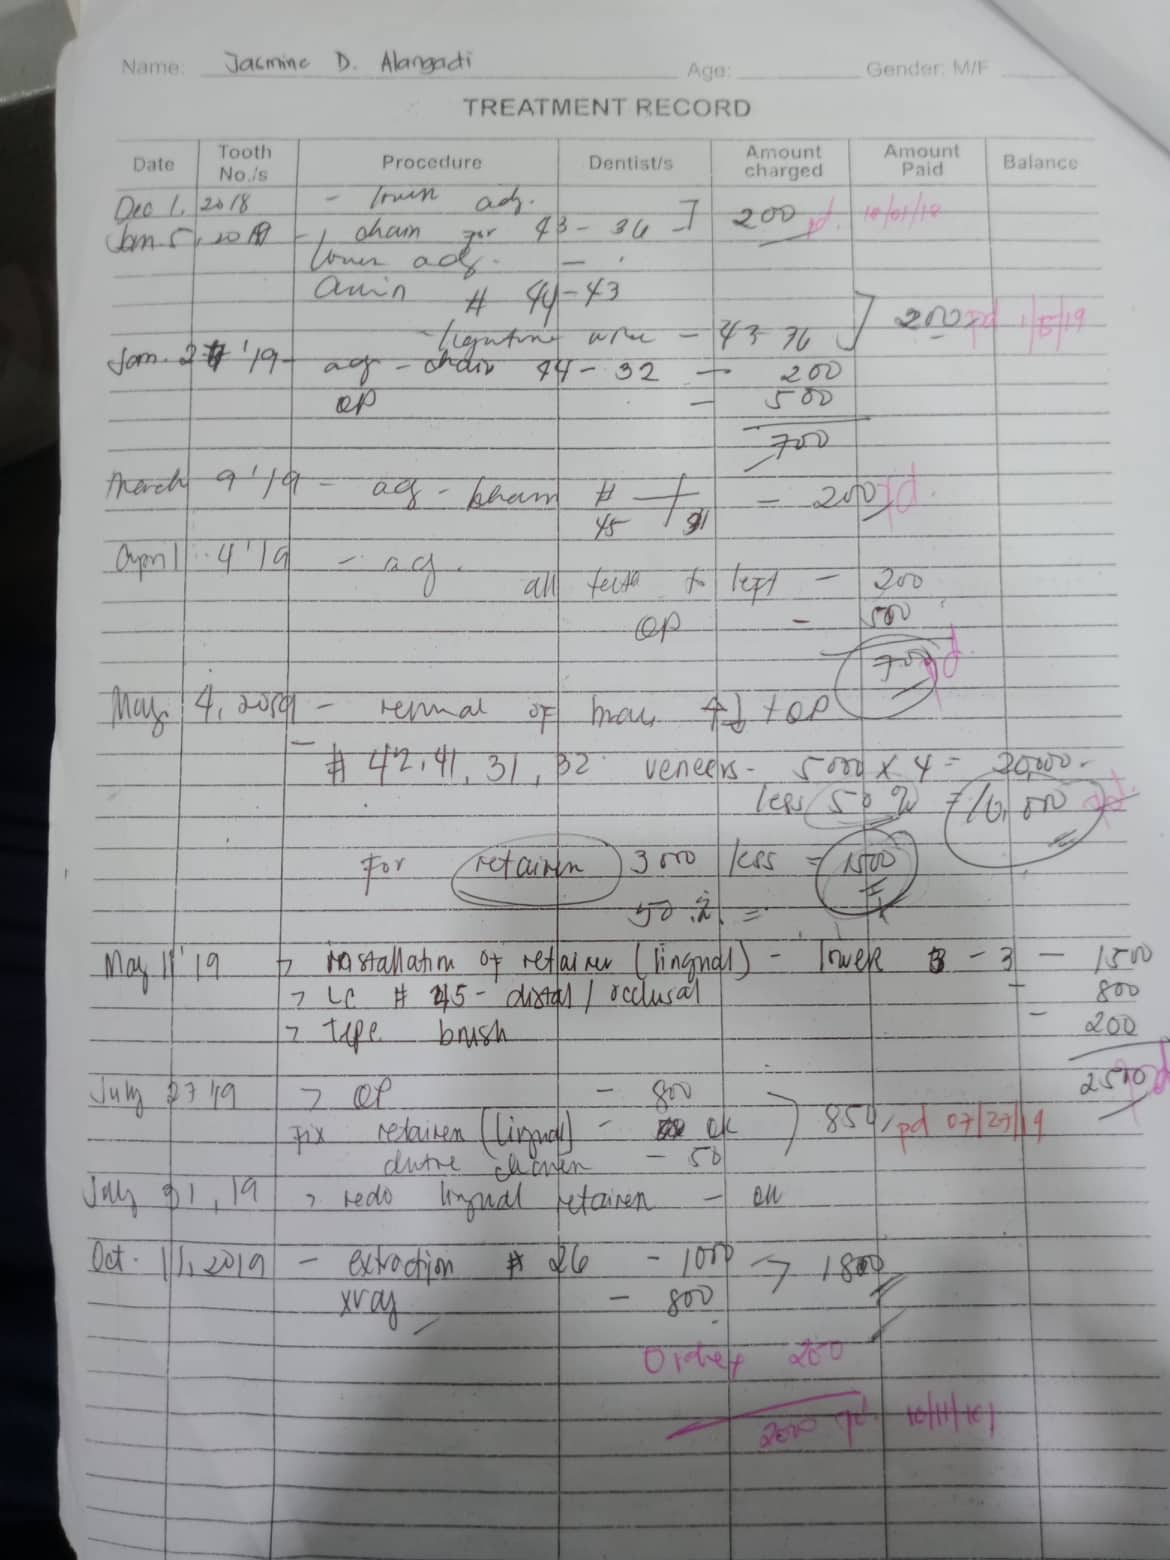 Name: Jasmine D. Alangadi Age: Gender: M/F
TREATMENT RECORD
Date Tooth No./s Procedure Dentist/s Amount charged Amount Paid Balance
Dec 1, 2018 - lower adj.
Jan. 5, 2019 - chain for 43 - 36 ] 200 pd.
lower adj. -
# 44-43
- ligature wire - 43 36 ] 200 pd 1/5/19
Jan. '19 - adj - chain 44 - 32 - 200
OP - 500
700
March 9 '19 - adj - chain # 45 - 200 pd.
April 4 '19 - adj.
all teeth to left - 200
OP - 500
700 pd.
May 4, 2019 - removal of + OP
- # 42, 41, 31, 32 veneers - 5000 x 4 = 20,000.
less 50% = 10,000
For retainer 3000 less = 1500
50 % =
May 11 '19 > installation of retainer (lingual) - lower 3 - 3 - 1500
> LC # 45 - distal / occlusal - 800
> tepe brush - 200
2500 pd
July 27 '19 > OP - 800
Fix retainer (lingual) - ok ) 850 / pd 07/27/19
- 50
July 31, 19 > redo lingual retainer - ok
Oct. 11, 2019 - extraction # 26 - 1000 > 1800
xray - 800
200
2000 pd.